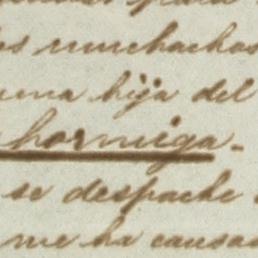 os muchachos
una hija del
hormiga-
se despache
me ha causa